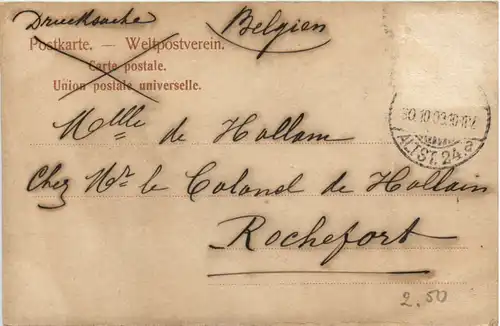 Drucksache Belgien
Postkarte. — Weltpostverein.
Carte postale.
Union postale universelle.
Melle de Hollain
Chez Mr. le Colonel de Hollain
Rochefort
ALTST. 24 a
2.50